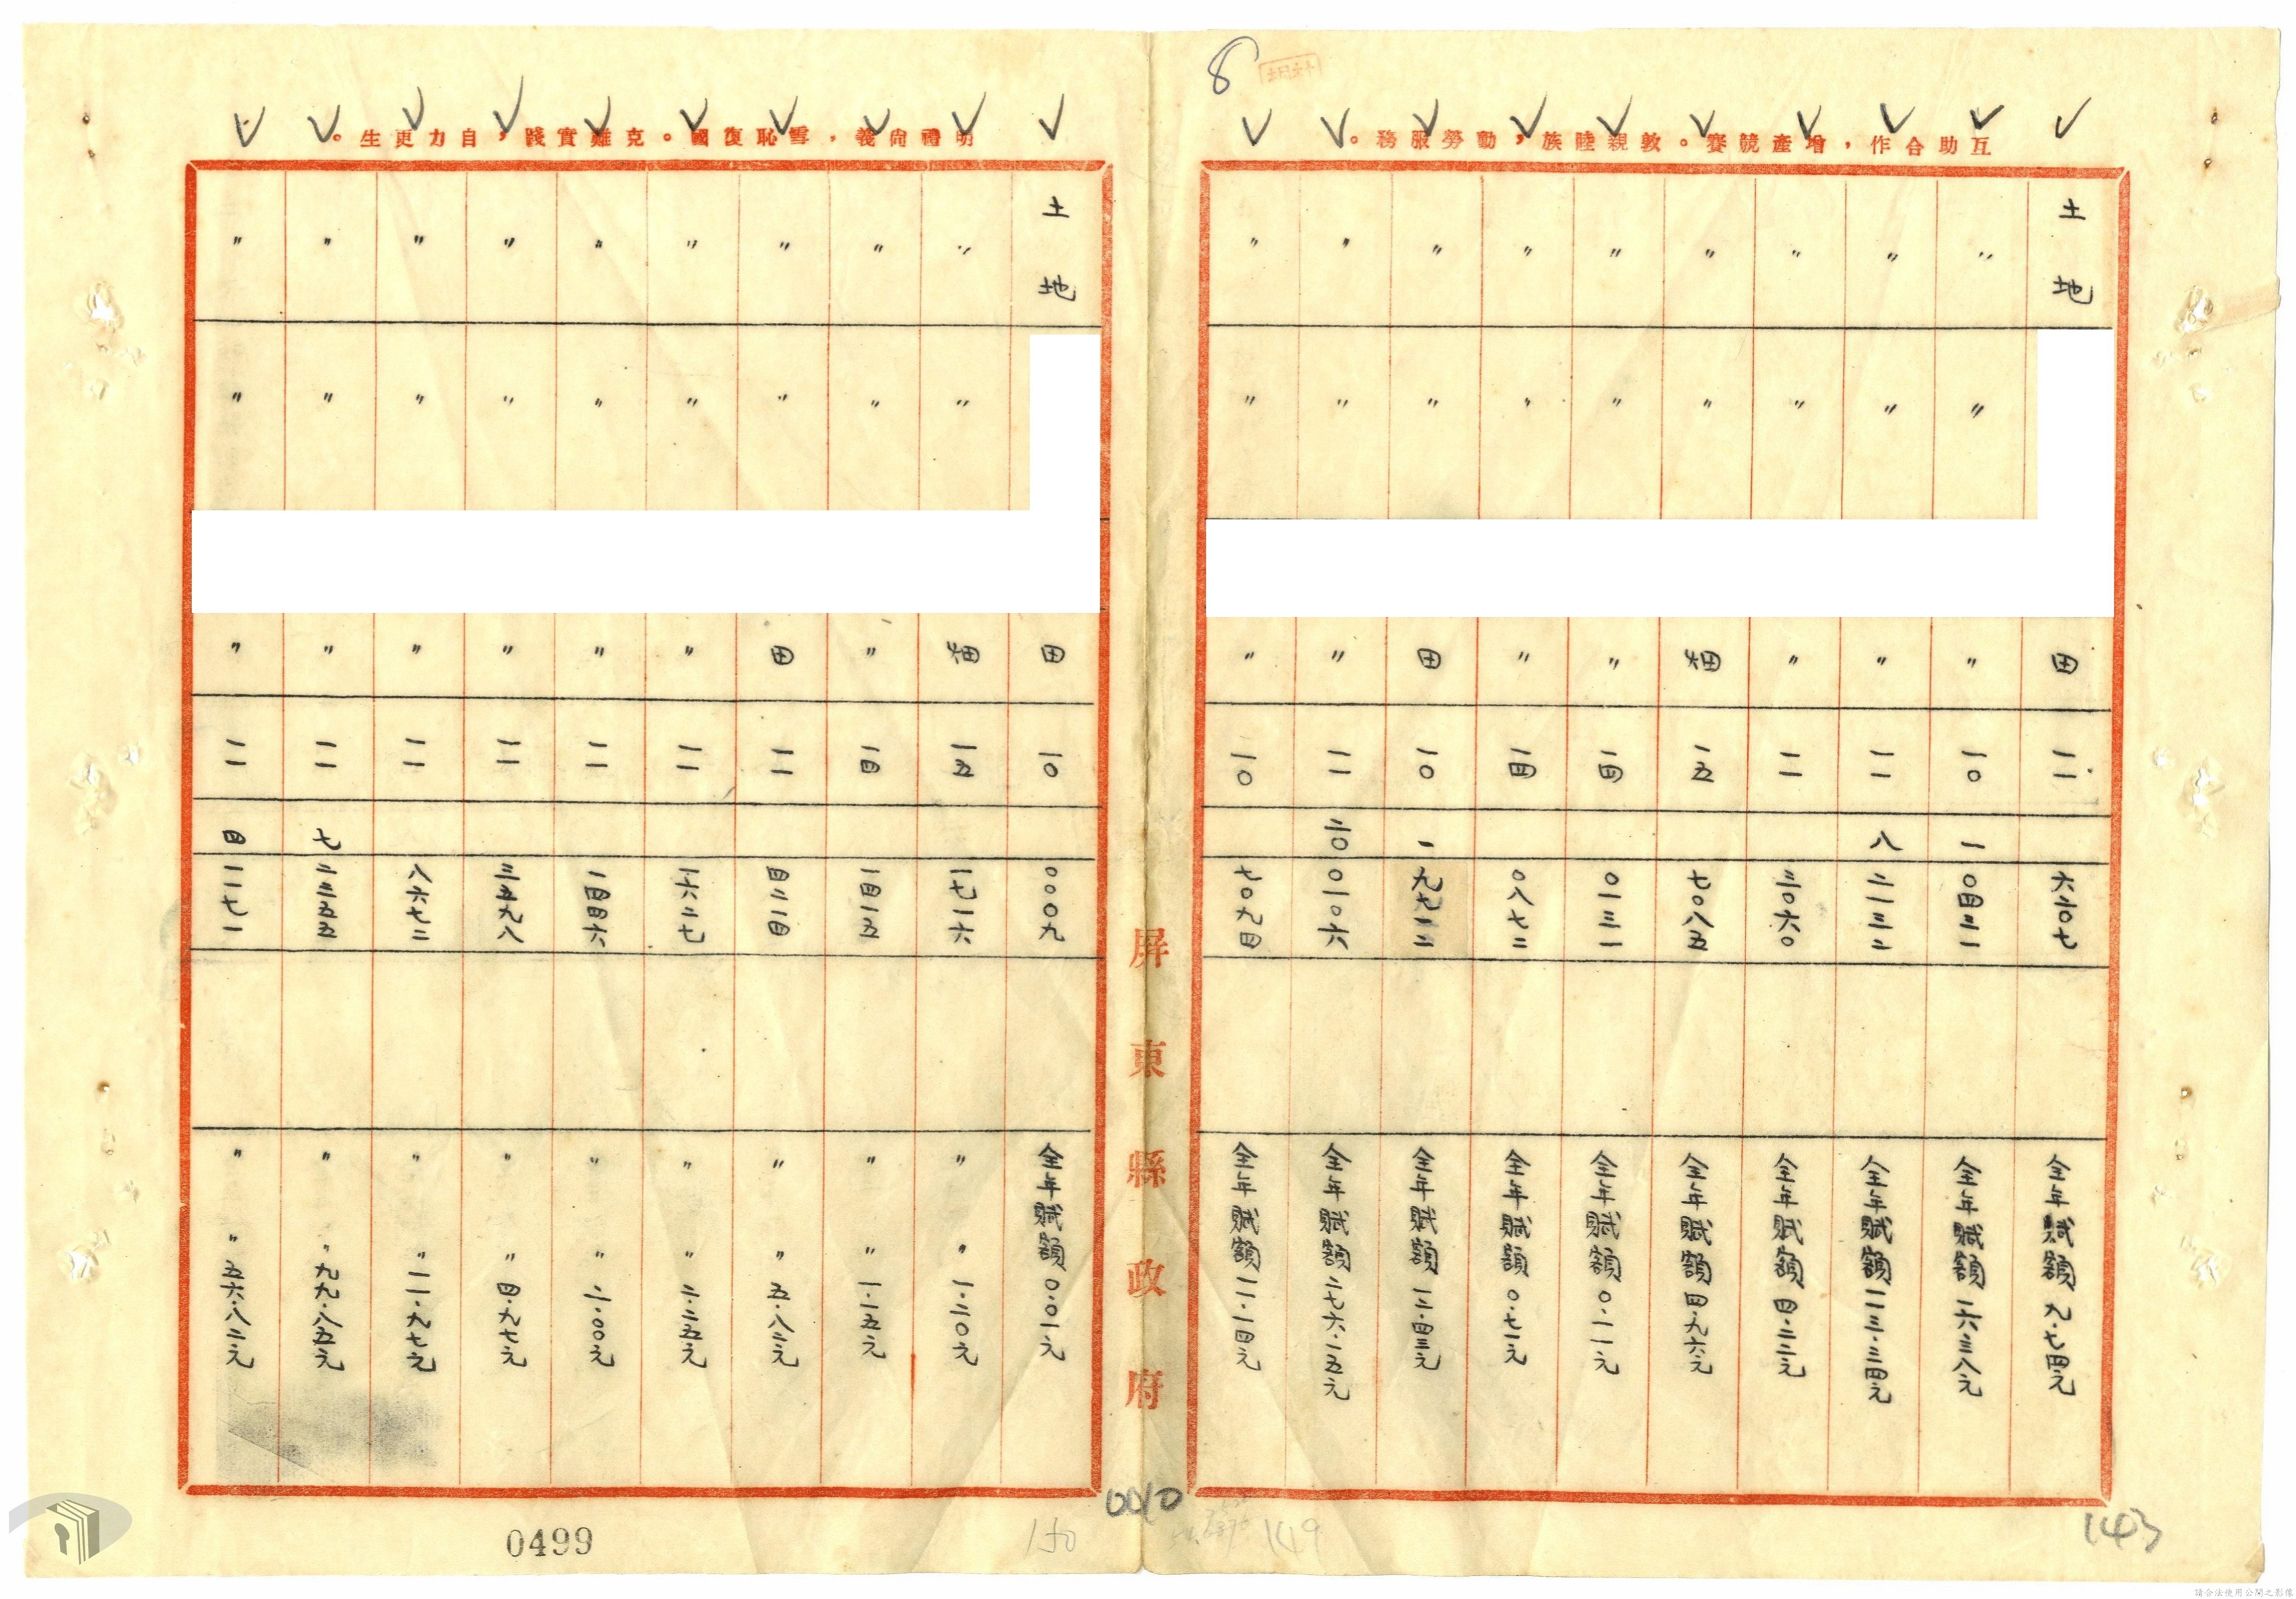 8
互助合作，增產競賽。敦親睦族，勤勞服務。
土地 田 一一 六二〇七 全年賦額九·七四元
〃 〃 〃 一〇 一 〇四三一 全年賦額一六·三八元
〃 〃 〃 一一 八 二一三二 全年賦額一一三·三四元
〃 〃 〃 一一 三〇六〇 全年賦額四·二二元
〃 〃 畑 一五 七〇八五 全年賦額四·九六元
〃 〃 〃 一四 〇一三一 全年賦額〇·一一元
〃 〃 〃 一四 〇八七二 全年賦額〇·七一元
〃 〃 田 一〇 一 九七一二 全年賦額一二·四三元
〃 〃 〃 一一 二〇 〇一〇六 全年賦額二七六·一五元
〃 〃 〃 一〇 七〇九四 全年賦額一一·一四元
屏東縣政府
明禮尚義，雪恥復國。克難實踐，自力更生。
土地 田 一〇 〇〇〇九 全年賦額〇·〇一元
〃 〃 畑 一五 一七一六 〃 〃 一·二〇元
〃 〃 〃 一四 一四一五 〃 〃 一·一五元
〃 〃 田 一一 四二一四 〃 〃 五·八二元
〃 〃 〃 一一 一六二七 〃 〃 二·二五元
〃 〃 〃 一一 一四四六 〃 〃 二·〇〇元
〃 〃 〃 一一 三五九八 〃 〃 四·九七元
〃 〃 〃 一一 八六七二 〃 〃 一一·九七元
〃 〃 〃 一一 七 二三五五 〃 〃 九九·八五元
〃 〃 〃 一一 四 一一七一 〃 〃 五六·八二元
143
149
0010
150
0499
請合法使用公開之影像